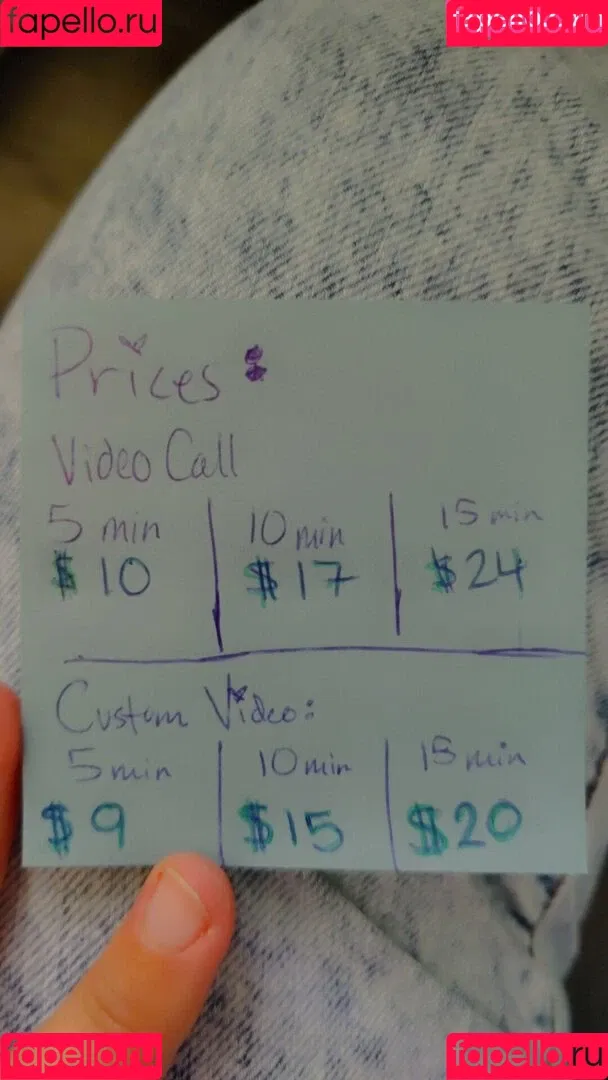 fapello.ru fapello.ru
Prices:
Video Call
5 min 10 min 15 min
$10 $17 $24
Custom Video:
5 min 10 min 15 min
$9 $15 $20
fapello.ru fapello.ru